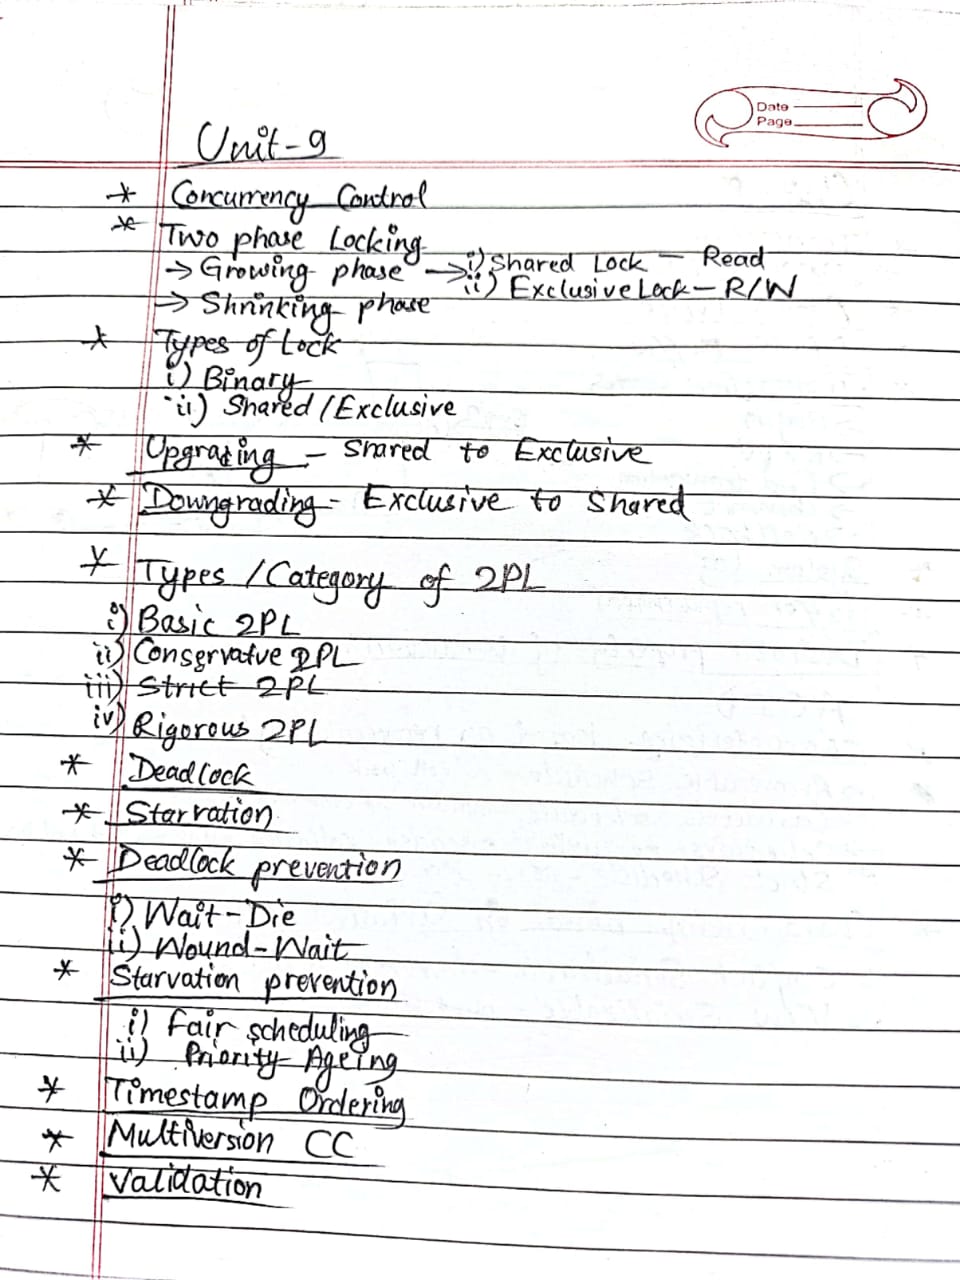 Date
Page
Unit-9
* Concurrency Control
* Two phase Locking
→ Growing phase → i) Shared Lock - Read
ii) Exclusive Lock - R/W
→ Shrinking phase
* Types of Lock
i) Binary
ii) Shared/Exclusive
* Upgrading - Shared to Exclusive
* Downgrading - Exclusive to Shared
* Types/Category of 2PL
i) Basic 2PL
ii) Conservatve 2PL
iii) Strict 2PL
iv) Rigorous 2PL
* Deadlock
* Starvation
* Deadlock prevention
i) Wait-Die
ii) Wound-Wait
* Starvation prevention
i) Fair scheduling
ii) Priority Ageing
* Timestamp Ordering
* Multiversion CC
* Validation